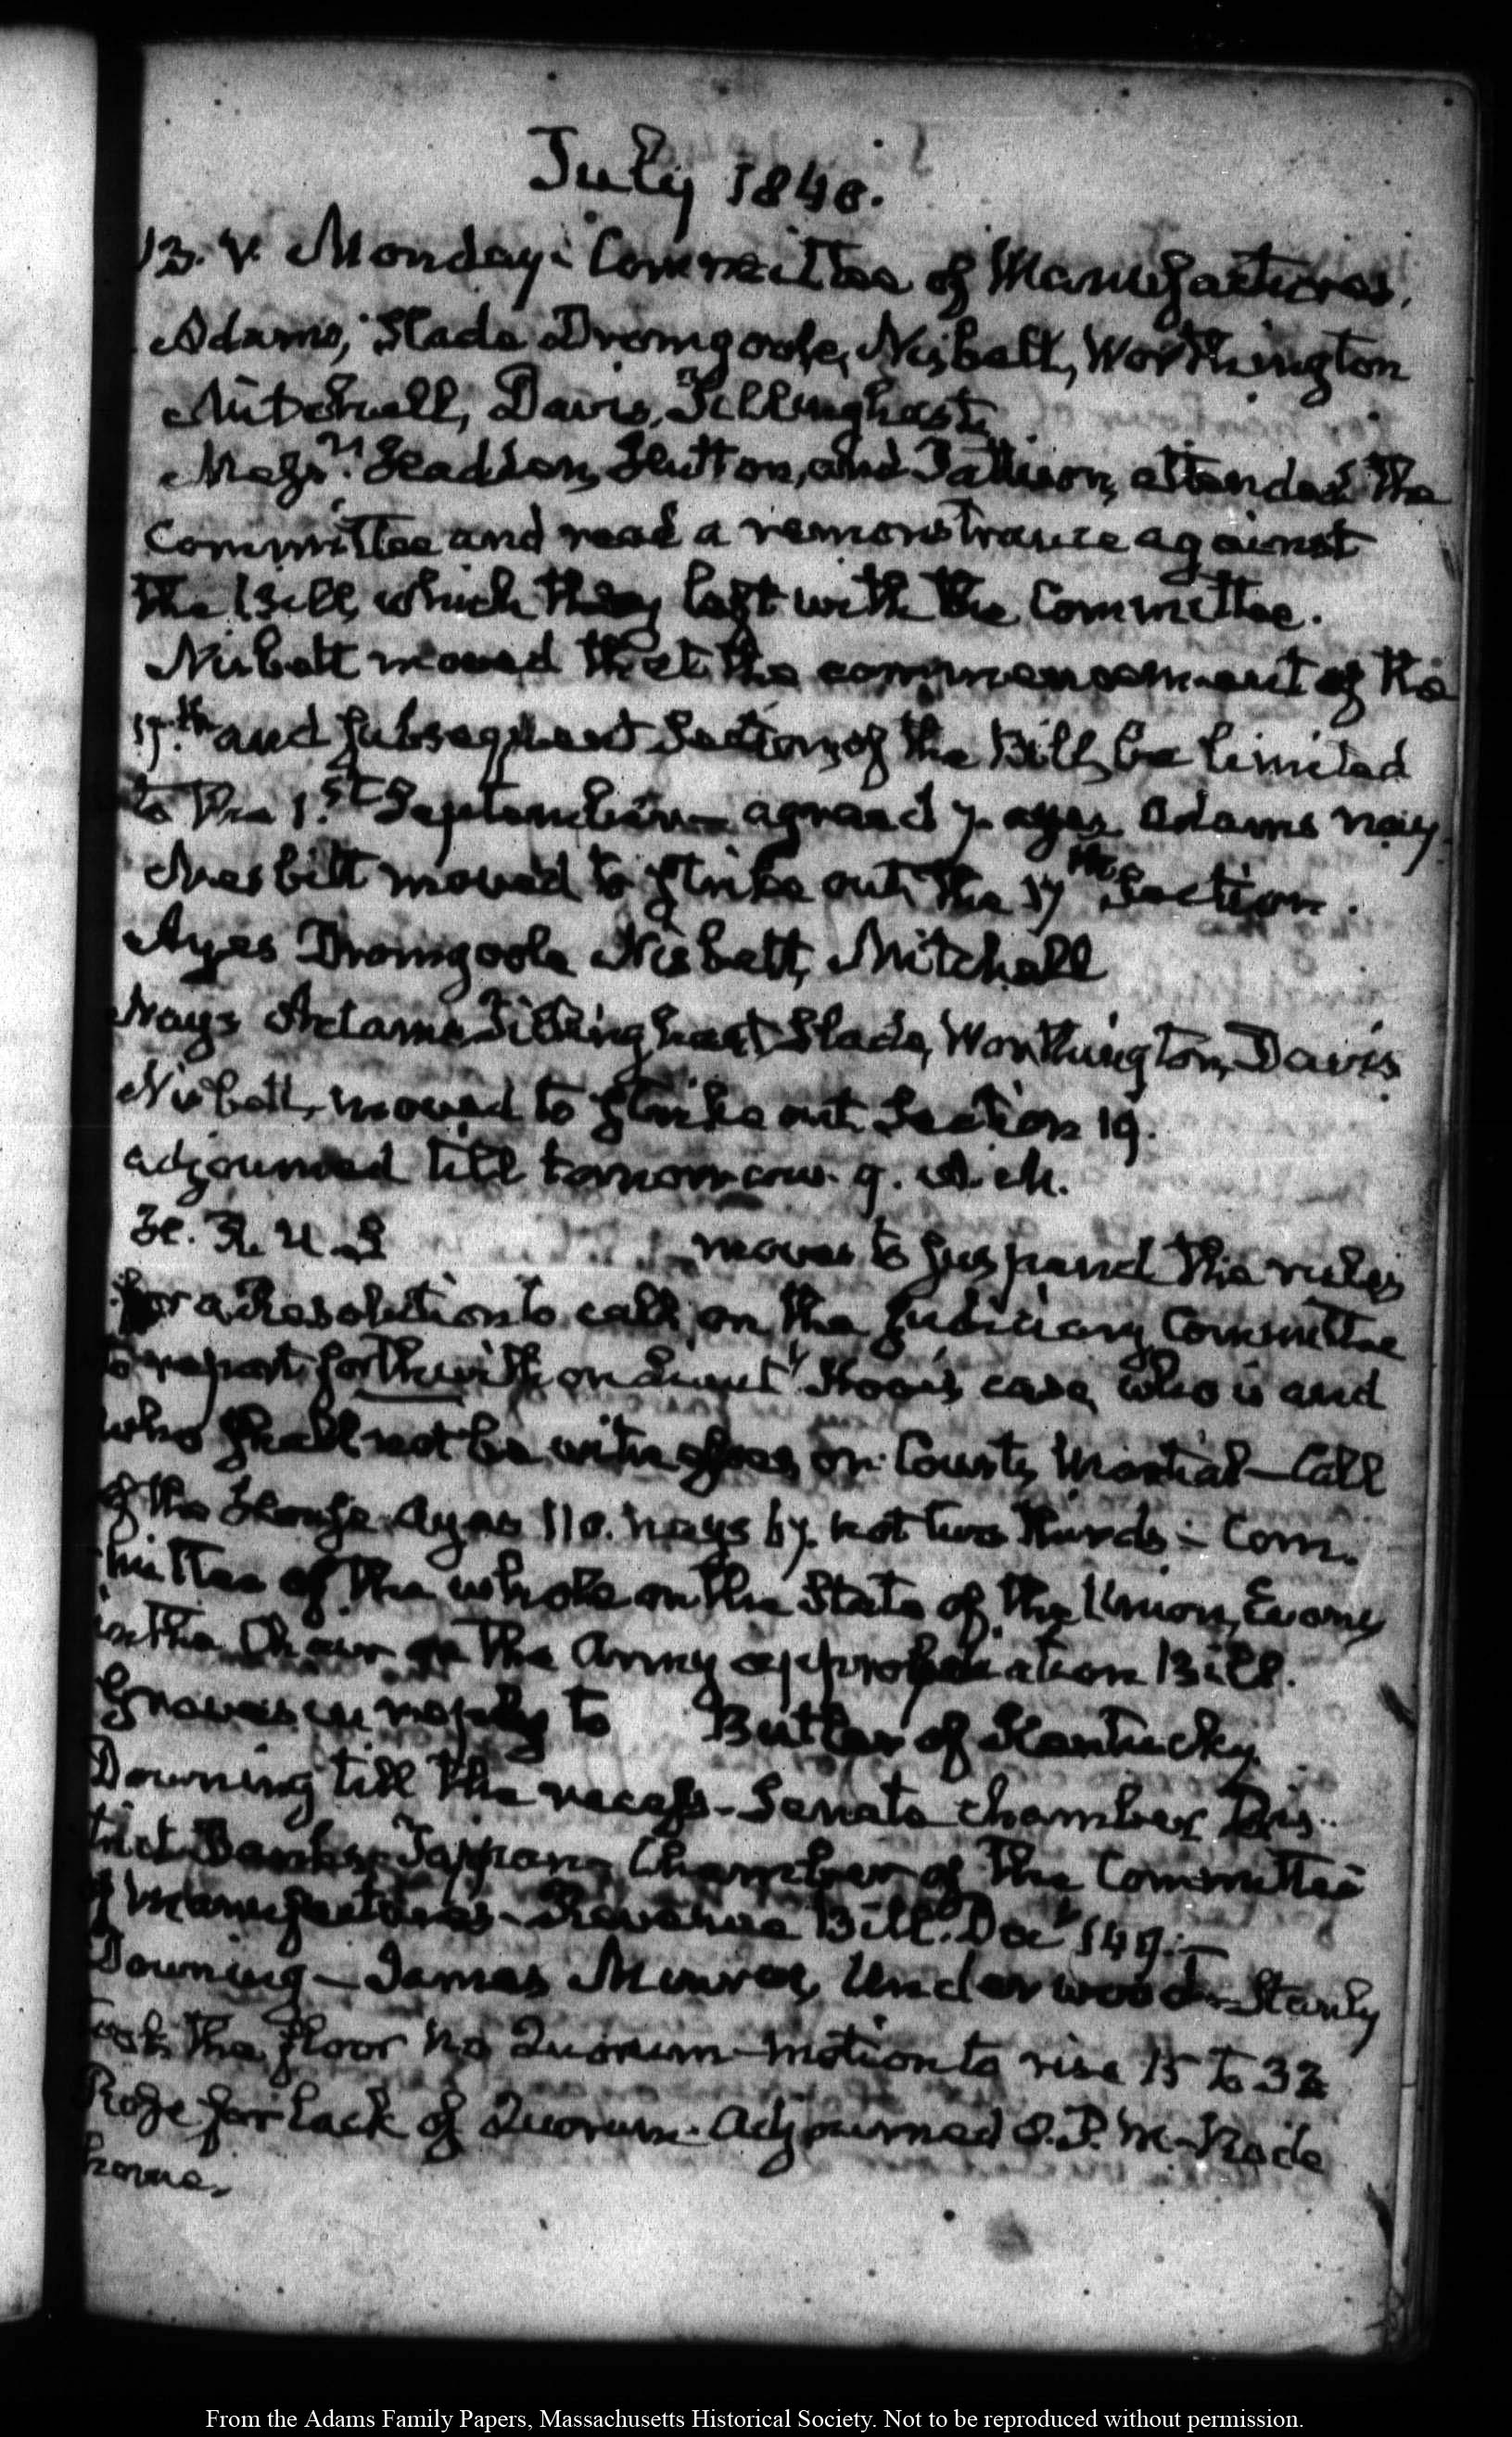 July 1840.
13. V. Monday. Committee of Manufactures.
Adams, Slade Dromgoole, Nisbett, Worthington
Mitchell, Davis, Tillinghast
Messrs. Haddon, Hutton, and Pattison, attended the
Committee and read a remonstrance against
the Bill, which they left with the Committee.
Nisbett moved that the commencement of the
17.th and subsequent Sections of the Bill, be limited
to the 1.st September — agreed 7. ayes Adams nay.
Nesbitt moved to strike out the 17th Section.
Ayes Dromgoole Nisbett, Mitchell
Nays Adams, Tillinghast, Slade, Worthington, Davis
Nisbett, moved to strike out Section 19.
adjourned till tomorrow. 9.
H. R. U.S moves to suspend the rules
for a Resolution to call on the Judiciary Committee
to report forthwith on Lieutt Hooe's case, who is and
who shall not be witnesses, on Courts Martial — Call
of the House Ayes 110. nays 67. not two thirds — Com-
mittee of the whole on the State of the Union,
in the Chair on the Army appropriation Bill.
Graves in reply to Butler of Kentucky
Downing till the recess — Senate chamber Dis-
trict Banks — Tappan — Chamber of the Committee
of Manufactures — Revenue Bill. Doct 149. —
Downing — James Monroe, Underwood — Stanly
took the floor No Quorum — motion to rise 15 to 32
Rose for lack of Quorum. Adjourned 8. P.M. — Rode
home.
From the Adams Family Papers, Massachusetts Historical Society. Not to be reproduced without permission.